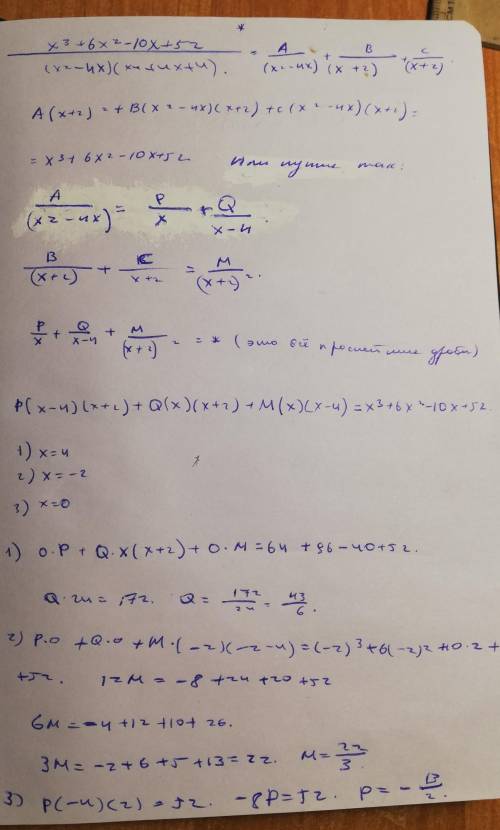 *
x³+6x²-10x+52 / (x²-4x)(x²+4x+4). = A/(x²-4x) + B/(x+2) + C/(x+2)
A(x+2)²+B(x²-4x)(x+2)+C(x²-4x)(x+2)=
=x³+6x²-10x+52 Или лучше так:
A/(x²-4x) = P/x + Q/x-4.
B/(x+2) + C/x+2 = M/(x+2)².
P/x + Q/x-4 + M/(x+2)² = * (это всё простейшие дроби)
P(x-4)(x+2)+Q(x)(x+2)+M(x)(x-4)=x³+6x²-10x+52
1) x=4
2) x=-2
3) x=0
1) 0·P+Q·x(x+2)+0·M=64+96-40+52.
Q·24=172. Q=172/24=43/6.
2) P·0+Q·0+M·(-2)(-2-4)=(-2)³+6(-2)²+10·2+
+52. 12M=-8+24+20+52
6M=-4+12+10+26.
3M=-2+6+5+13=22. M=22/3.
3) P(-4)(2)=52. -8P=52. P=-13/2.